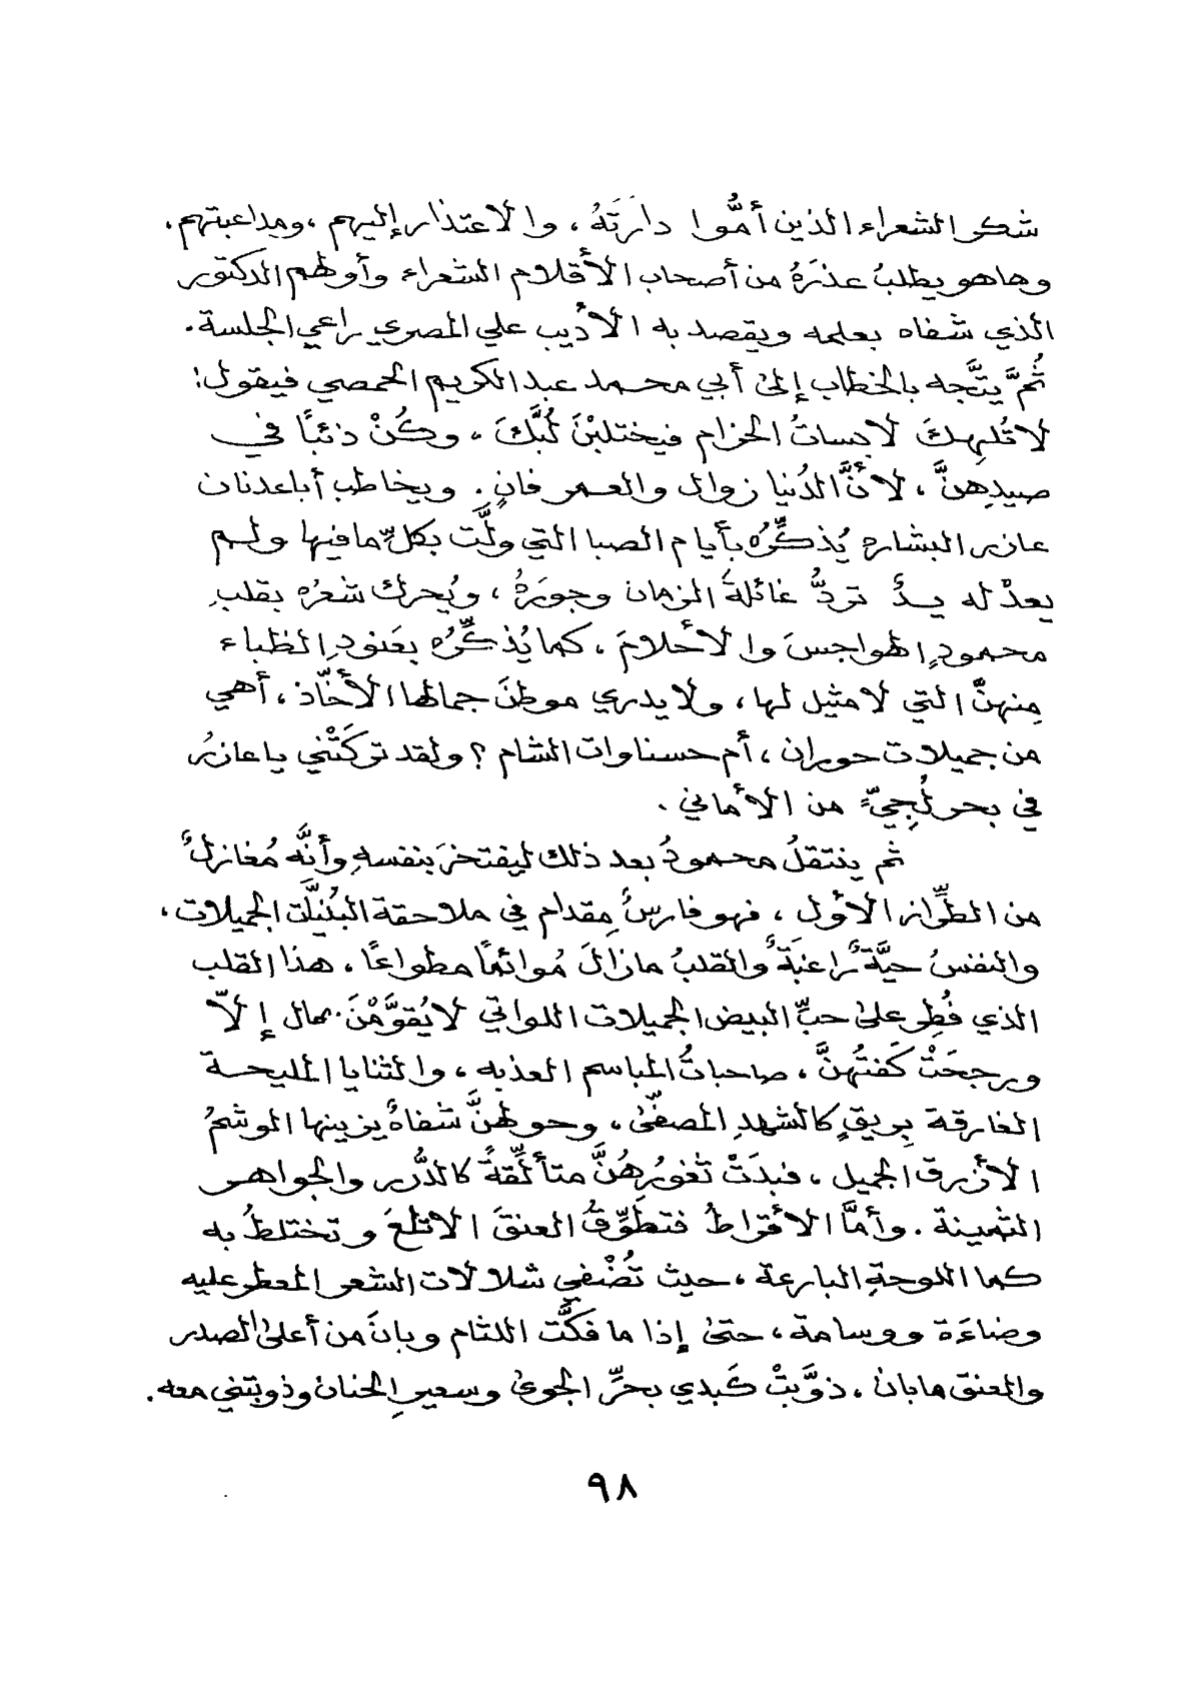 شكر الشعراء الذين أمُّوا دارَتَهُ، والاعتذار إليهم، ومداعبتهم.
وهاهو يطلبُ عذرَهُ من أصحاب الأقلام الشعراء وأولهم الدكتور
الذي شفاه بعلمه ويقصد به الأديب علي المصري راعي الجلسة.
ثُمَّ يتَّجه بالخطاب إلىٰ أبي محمد عبد الكريم الحمصي فيقول:
لا تُلهِكَ لابساتُ الخزام فيختلبْنَ لُبَّكَ، وكُنْ ذئبًا في
صيدِهنَّ، لأنَّ الدُنيا زوال والعمر فانٍ. ويخاطب أبا عدنان
عازر البشاره يُذكِّرُه بأيام الصبا التي ولَّت بكلِّ ما فيها ولم
يعدْ له يدٌ تردُّ غائلةَ الزمان وجورَهُ، ويُحرك شعرُه بقلبِ
محمودٍ الهواجسَ والأحلامَ، كما يُذكِّرُه بعَنودِ الظباء
مِنهنَّ التي لا مثيل لها، ولا يدري موطنَ جمالها الأخَّاذ، أهي
من جميلات حوران، أم حسناوات الشام؟ ولقد تركَتْني يا عازرُ
في بحر لُجِيٍّ من الأماني.
ثم ينتقلُ محمودُ بعد ذلك ليفتخرَ بنفسهِ وأنَّه مُغازلٌ
من الطِّراز الأول، فهو فارسٌ مِقدام في ملاحقة البُنيَّات الجميلات،
والنفسُ حيَّةٌ راغبَةٌ والقلبُ مازالَ مُوائمًا مطواعًا، هذا القلب
الذي فُطِر علىٰ حبِّ البيض الجميلات اللواتي لا يُقوَّمْنَ بمال إلّا
ورجحَتْ كَفتُهنَّ، صاحباتُ المباسم العذبه، والثنايا المليحة
الغارقة بِريقٍ كالشهدِ المصفّىٰ، وحولهنَّ شفاهٌ يزينها الوشمُ
الأزرق الجميل، فبدَتْ ثغورُهُنَّ متألِّقةً كالدُّرر والجواهر
الثمينة. وأمَّا الأقراطُ فتطَوِّقُ العنقَ الاتلعَ وتختلطُ به
كما اللوحةِ البارعة، حيث تُضْفي شلالات الشعر المعطر عليه
وضاءَة ووسامة، حتىٰ إذا ما فكَّت اللثام وبانَ من أعلىٰ الصدر
والعنق مابان، ذوَّبتْ كَبدي بحرِّ الجوىٰ وسعيرِ الحنان وذوبتني معه.
٩٨